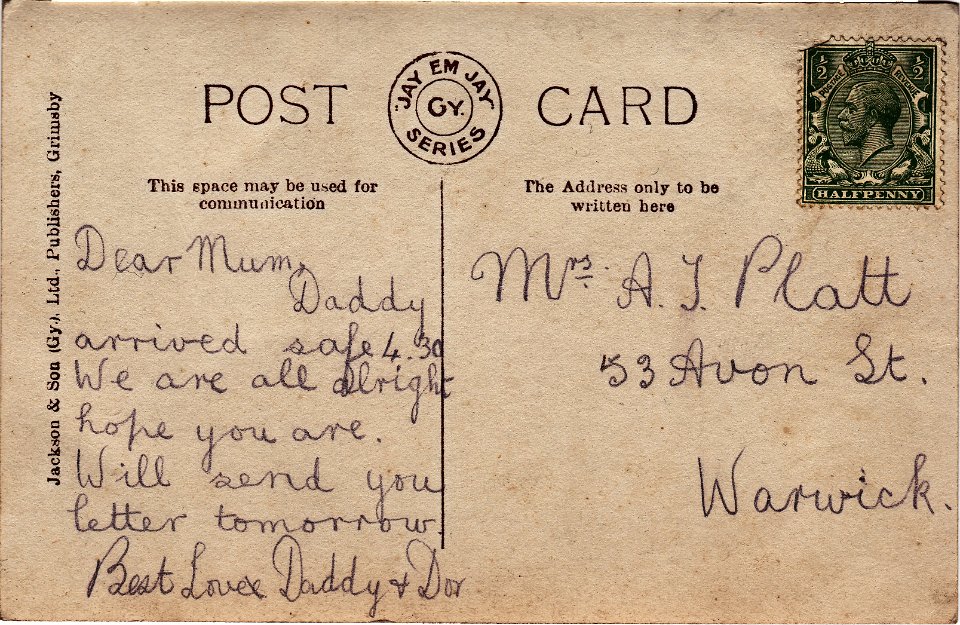 POST CARD
"JAY EM JAY"
GY.
SERIES
½ ½
POSTAGE REVENUE
HALFPENNY
Jackson & Son (Gy.), Ltd., Publishers, Grimsby
This space may be used for
communication
Dear Mum,
Daddy
arrived safe 4.30
We are all alright
hope you are.
Will send you
letter tomorrow
Best Love x Daddy & Dor
The Address only to be
written here
Mrs. A. J. Platt
53 Avon St.
Warwick.